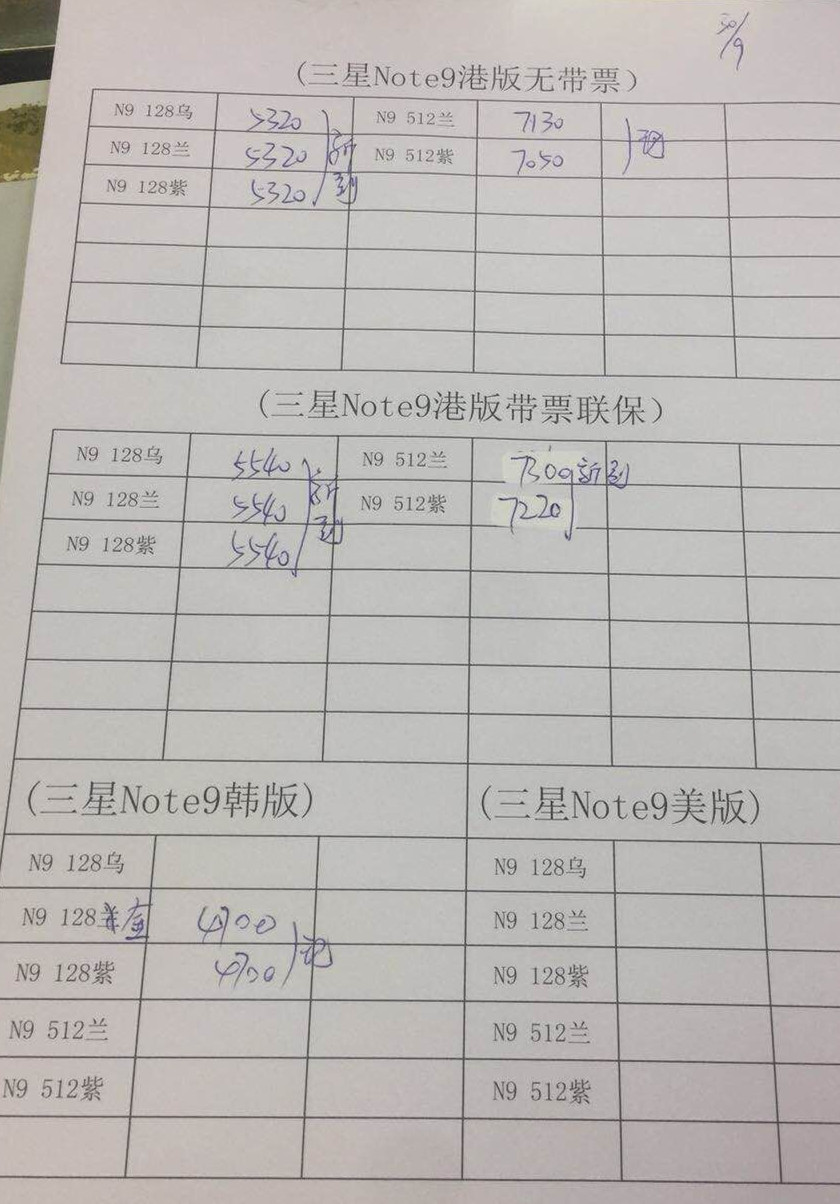 30/9
(三星Note9港版无带票)
N9 128乌 5320 N9 512兰 7130
N9 128兰 5320 新到 N9 512紫 7050 现
N9 128紫 5320
(三星Note9港版带票联保)
N9 128乌 5540 N9 512兰 7300 新到
N9 128兰 5540 新到 N9 512紫 7220
N9 128紫 5540
(三星Note9韩版) (三星Note9美版)
N9 128乌 N9 128乌
N9 128 4700 N9 128兰
N9 128紫 4700 现 N9 128紫
N9 512兰 N9 512兰
N9 512紫 N9 512紫